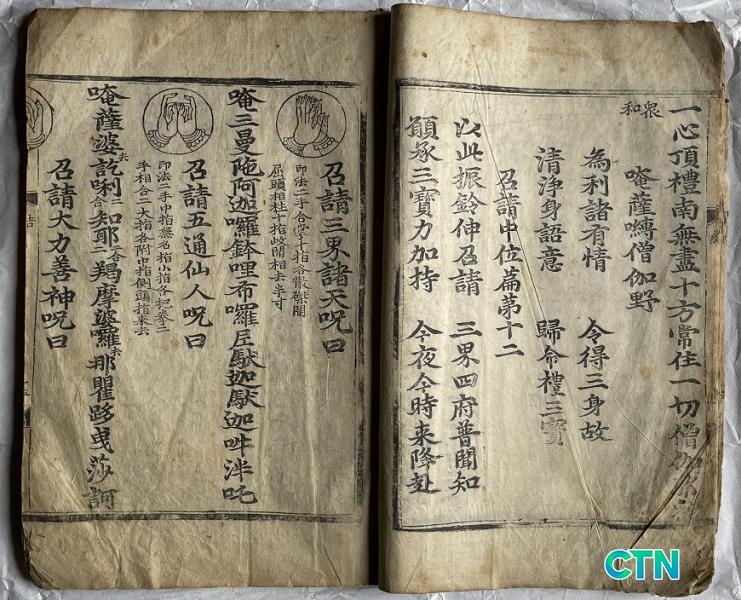 一心頂禮南無盡十方常住一切僧伽
衆和
唵薩嚩僧伽野
為利諸有情　令得三身故
清淨身語意　歸命禮三寶
召請中位篇第十二
以此振鈴伸召請　三界四府普聞知
願承三寶力加持　今夜今時来降赴
召請三界諸天呪曰
印法二手合掌十指各散磔開
屈頭相柱十指歧間相去半寸
唵三曼陁阿迦囉鉢哩布囉尼馱迦馱迦吽泮吒
召請五通仙人呪曰
印法二手中指無名指小指各
手相合二大指各附中指側頭指来去
唵薩婆訖唎二合知耶二合羯摩婆囉去那瞿曳莎訶
召請大力善神呪曰
CTN